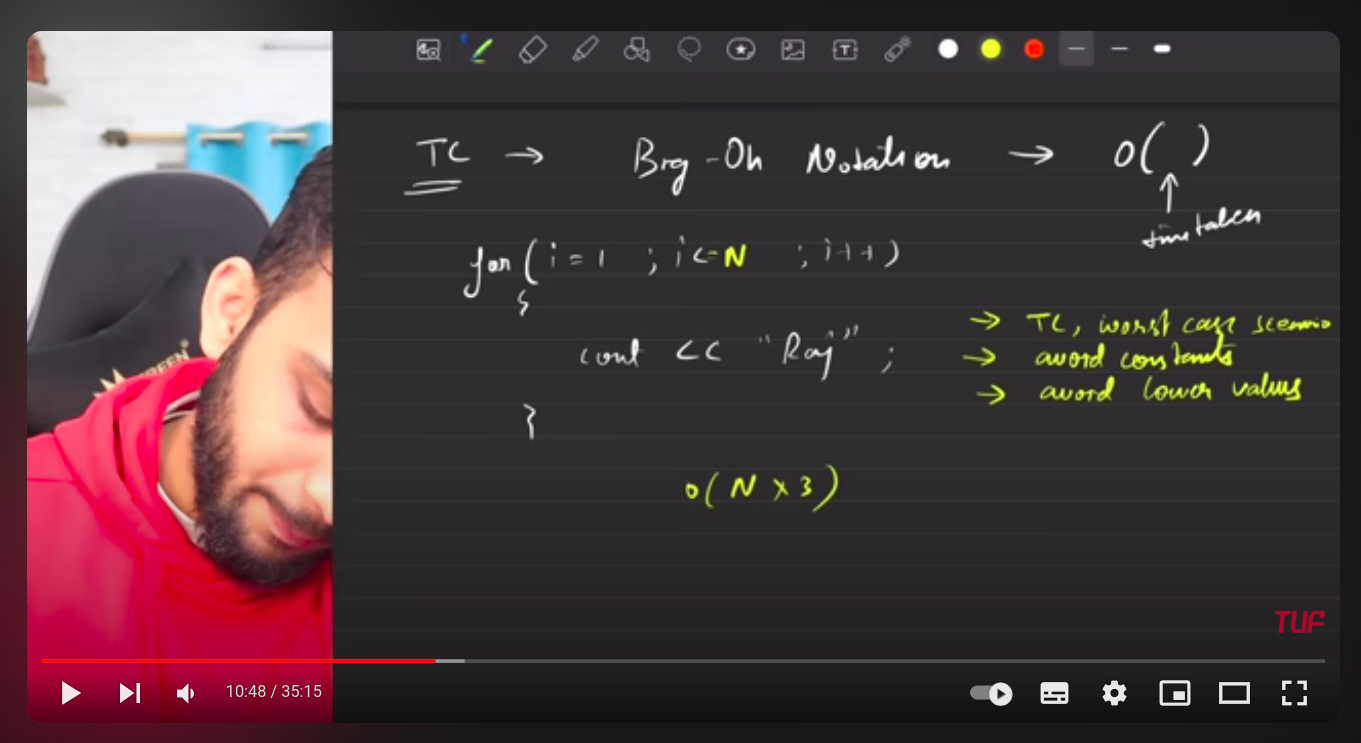 TC → Big-Oh Notation → O( )
↑
time taken
for (i = 1 ; i <= N ; i++)
{
cout << "Raj" ;
}
→ TC, worst case scenario
→ avoid constants
→ avoid lower values
O( N x 3 )
TUF
10:48 / 35:15